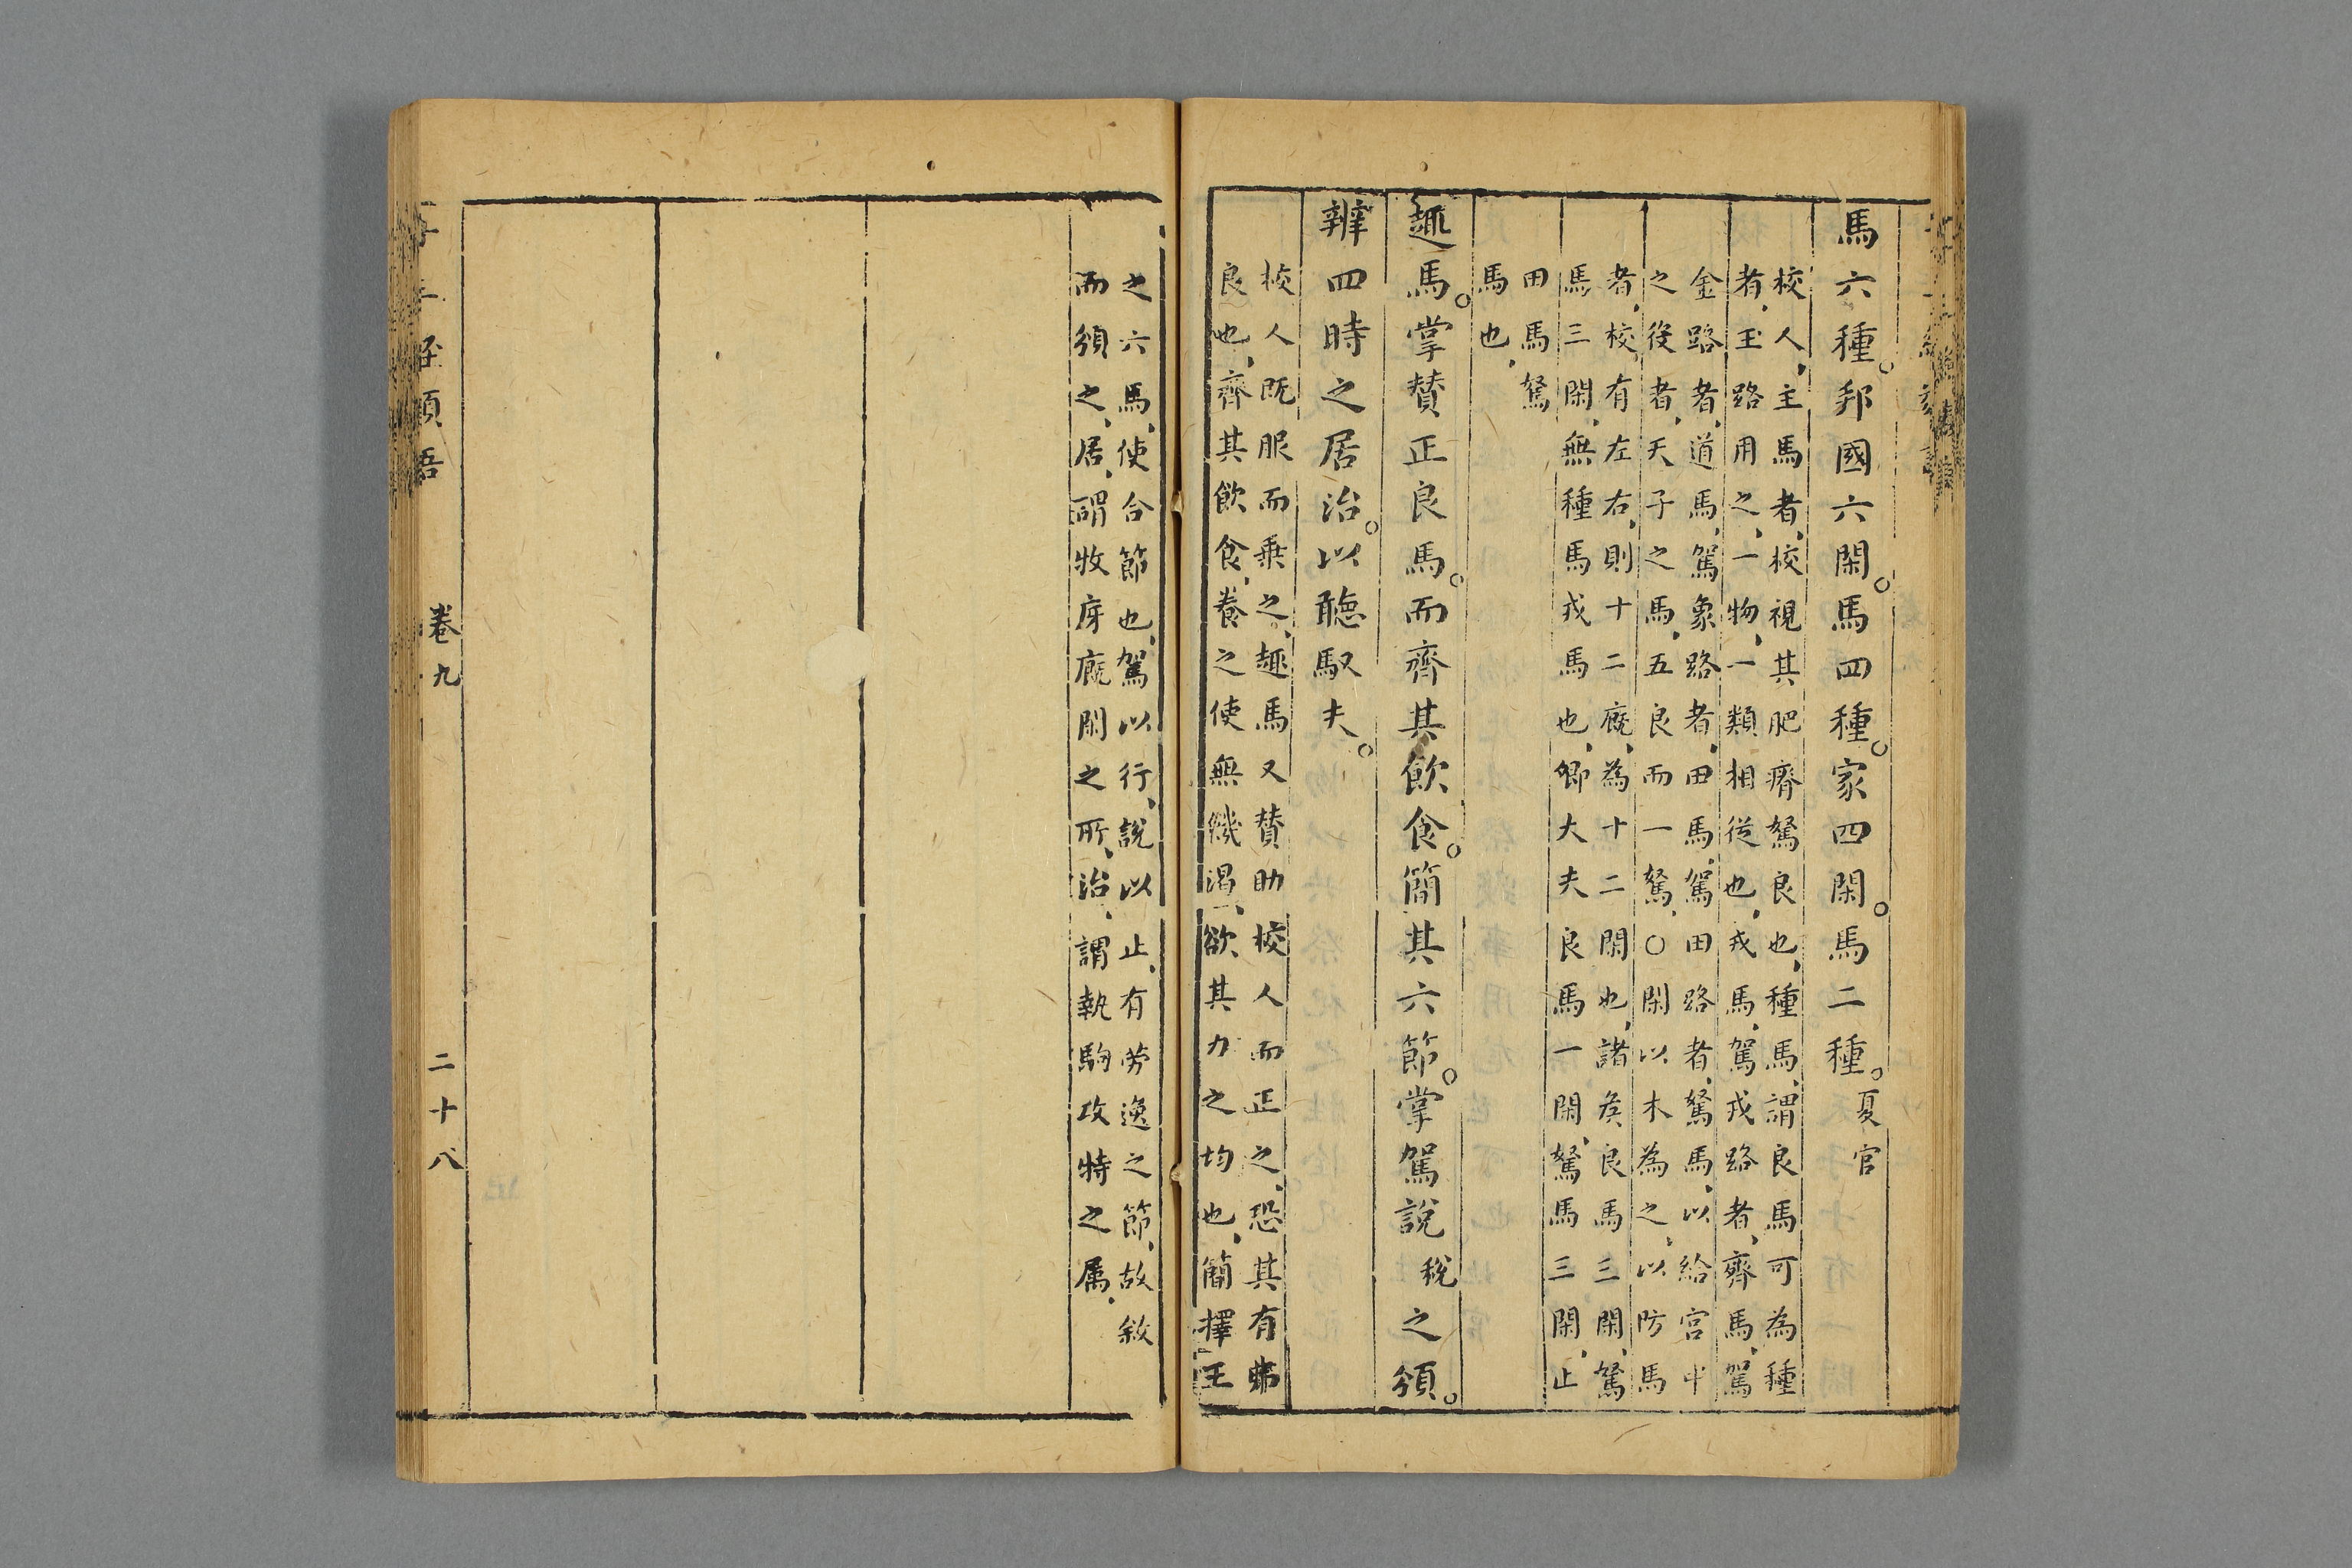 馬六種。邦國六閑。馬四種。家四閑。馬二種。夏官
校人、主馬者、校視其肥瘠駑良也、種馬、謂良馬可為種
者、玉路用之、一物、一類相從也、戎馬、駕戎路者、齊馬、駕
金路者、道馬、駕象路者、田馬、駕田路者、駑馬、以給宮中
之役者、天子之馬、五良而一駑、○閑以木為之、以防馬
者、校有左右、則十二廐、為十二閑也、諸矦良馬三閑、駑
馬三閑、無種馬戎馬也、卿大夫良馬一閑、駑馬三閑、止
田馬駑
馬也、
趣馬。掌賛正良馬。而齊其飲食。簡其六節。掌駕說稅之頒。
辨四時之居治。以聽馭夫。
校人既服而乗之、趣馬又賛助校人而正之、恐其有弗
良也、齊其飲食、養之使無饑渴、欲其力之均也、簡擇王
之六馬、使合節也、駕以行、說以止、有勞逸之節、故敘
而頒之、居、謂牧庌廐閑之所、治、謂執駒攻特之属、
卷九
二十八